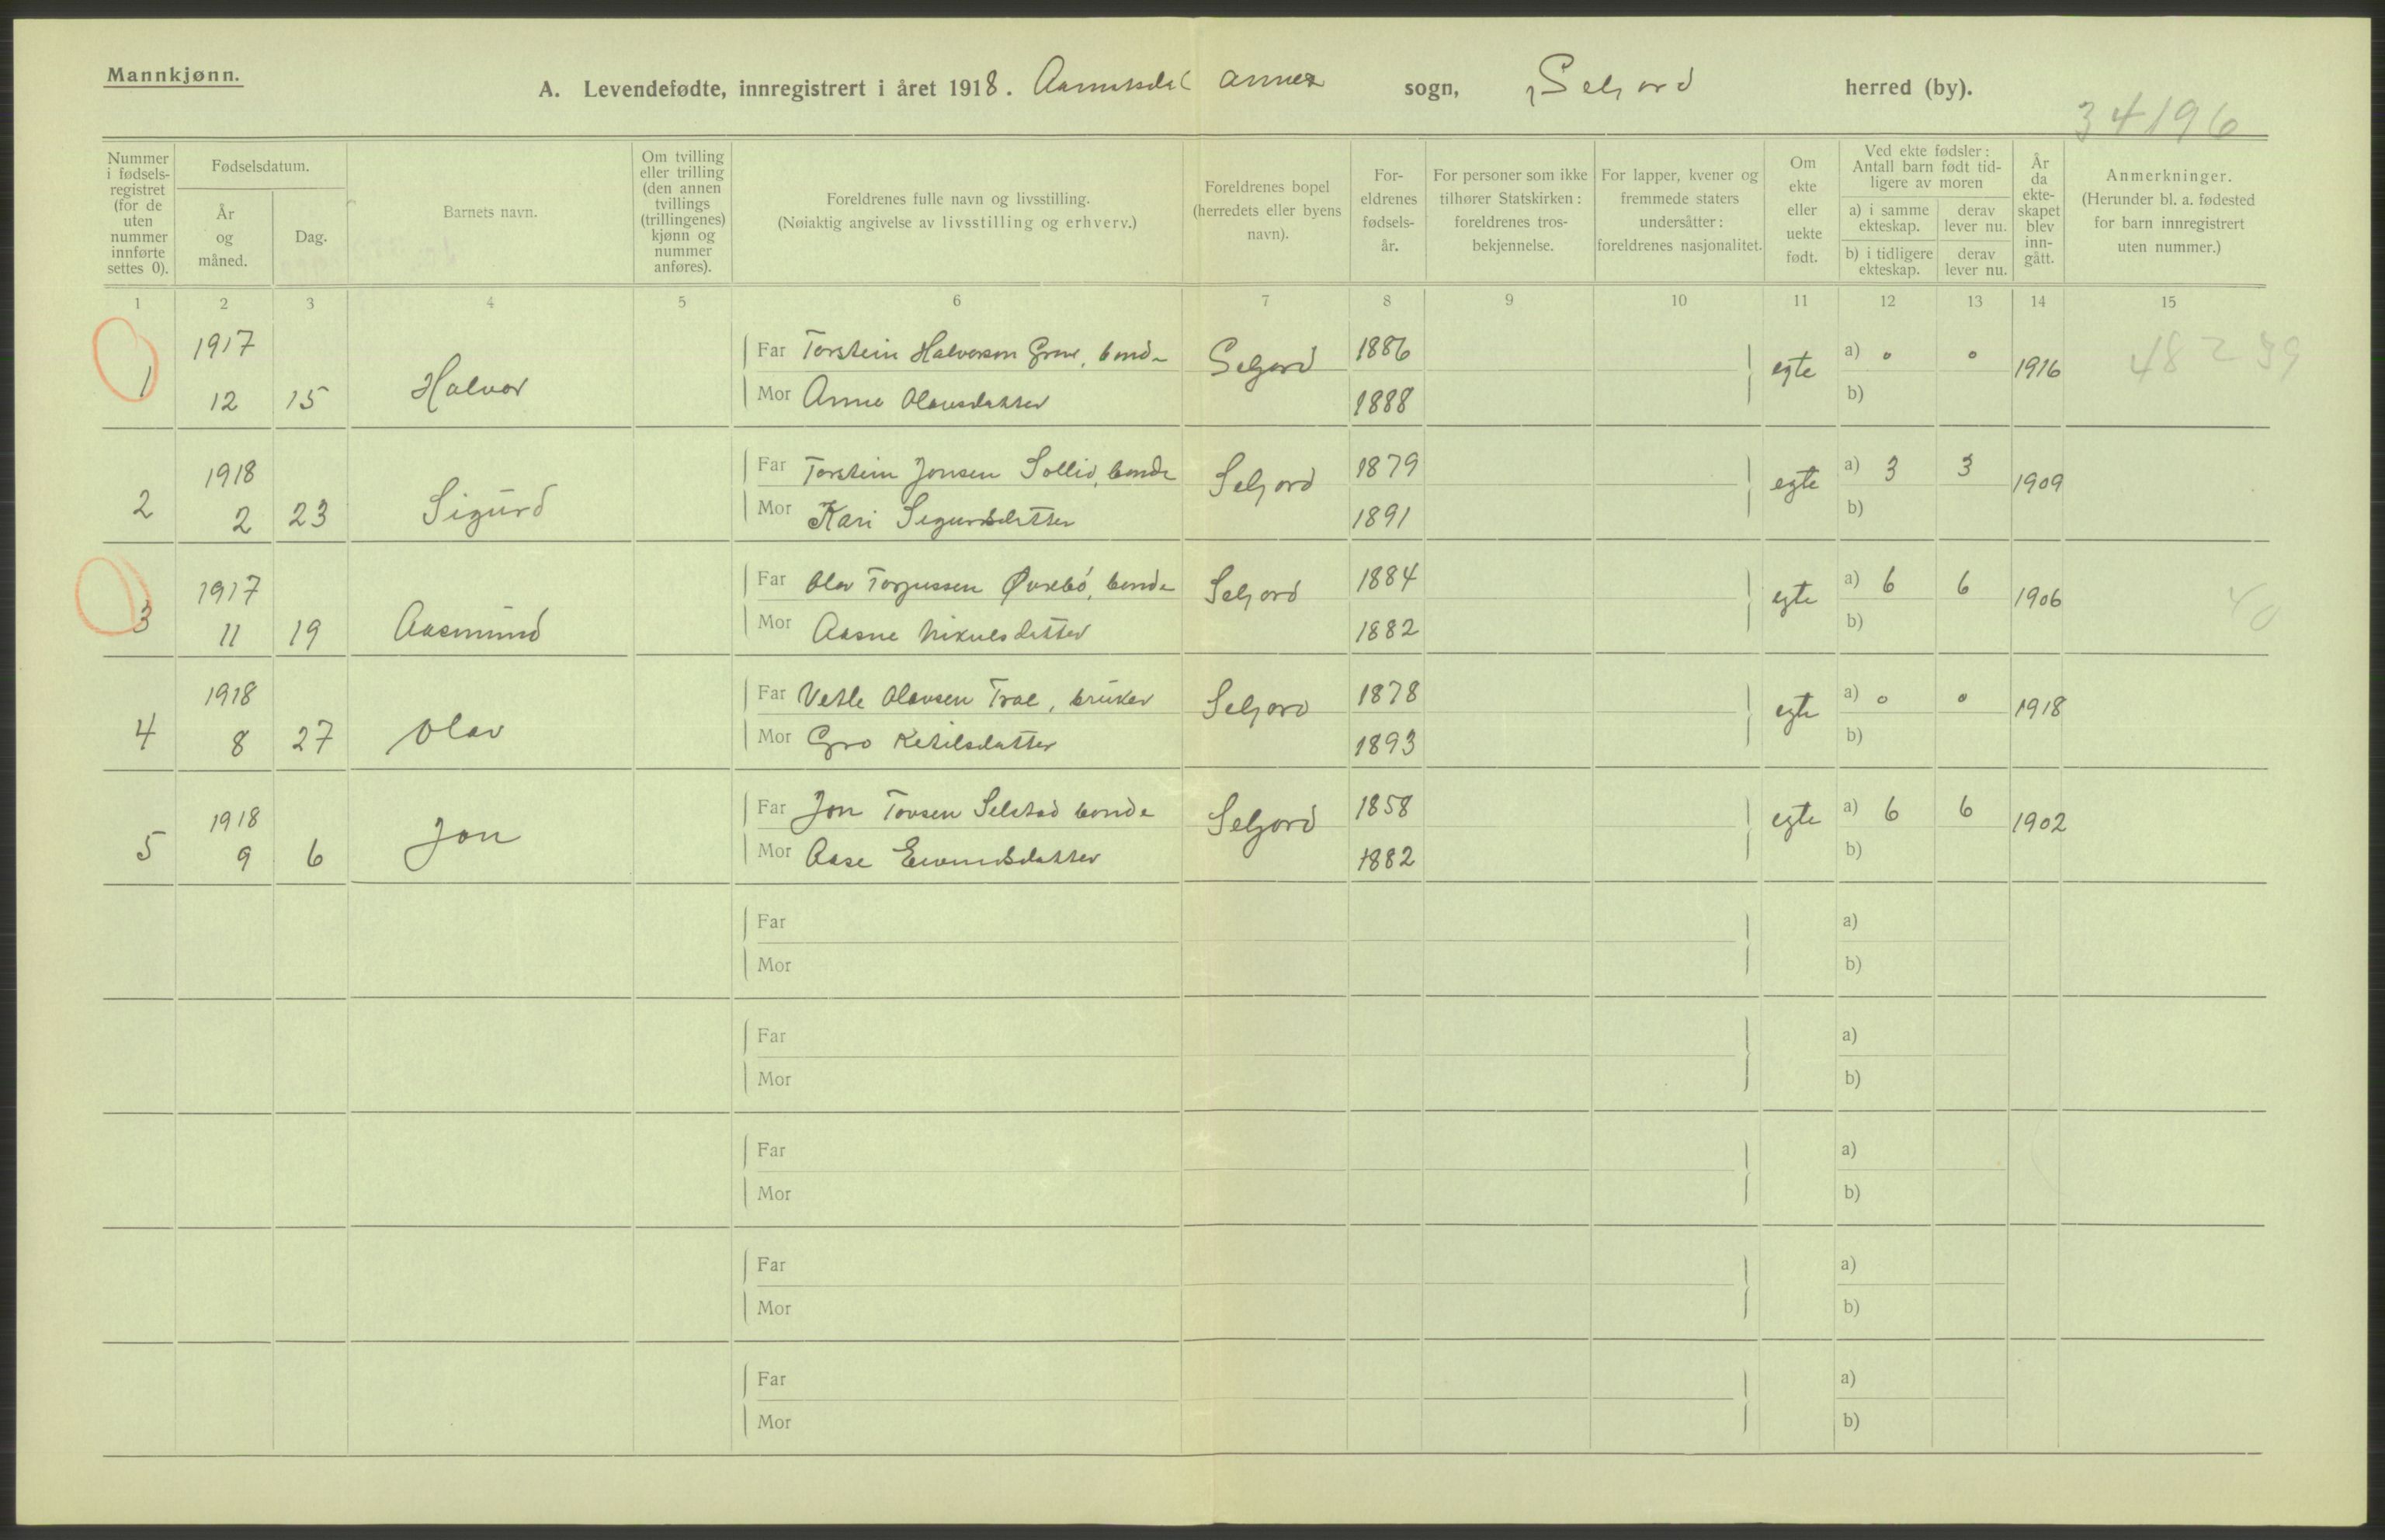 Mannkjønn.
A. Levendefødte, innregistrert i året 1918. annex sogn, Seljord herred (by).
34196
Nummer i fødsels-registret (for de uten nummer innførte settes 0).
Fødselsdatum.
År og måned.
Dag.
Barnets navn.
Om tvilling eller trilling (den annen tvillings (trillingenes) kjønn og nummer anføres).
Foreldrenes fulle navn og livsstilling.
(Nøiaktig angivelse av livsstilling og erhverv.)
Foreldrenes bopel (herredets eller byens navn).
For-eldrenes fødsels-år.
For personer som ikke tilhører Statskirken: foreldrenes tros-bekjennelse.
For lapper, kvener og fremmede staters undersåtter: foreldrenes nasjonalitet.
Om ekte eller uekte født.
Ved ekte fødsler: Antall barn født tid-ligere av moren
a) i samme ekteskap.
derav lever nu.
b) i tidligere ekteskap.
derav lever nu.
År da ekte-skapet blev inn-gått.
Anmerkninger.
(Herunder bl. a. fødested for barn innregistrert uten nummer.)
1 2 3 4 5 6 7 8 9 10 11 12 13 14 15
1917 Far Torstein Halvorson Grave, bonde Seljord 1886 egte a) 0 0 1916 48239
1 12 15 Halvor Mor Anne Olavsdatter 1888 b)
1918 Far Torstein Jonsen Sollid, bonde Seljord 1879 egte a) 3 3 1909
2 2 23 Sigurd Mor Kari Sigurdsdatter 1891 b)
1917 Far Olav Torjussen Øvrebö, bonde Seljord 1884 egte a) 6 6 1906 40
3 11 19 Aasmund Mor Aasne Nikulsdatter 1882 b)
1918 Far Vetle Olavsen Trae, bruker Seljord 1878 egte a) 0 0 1918
4 8 27 Olav Mor Gro Ketilsdatter 1893 b)
1918 Far Jon Tovsen Selstad bonde Seljord 1858 egte a) 6 6 1902
5 9 6 Jon Mor Aase Eivindsdatter 1882 b)
Far a)
Mor b)
Far a)
Mor b)
Far a)
Mor b)
Far a)
Mor b)
Far a)
Mor b)